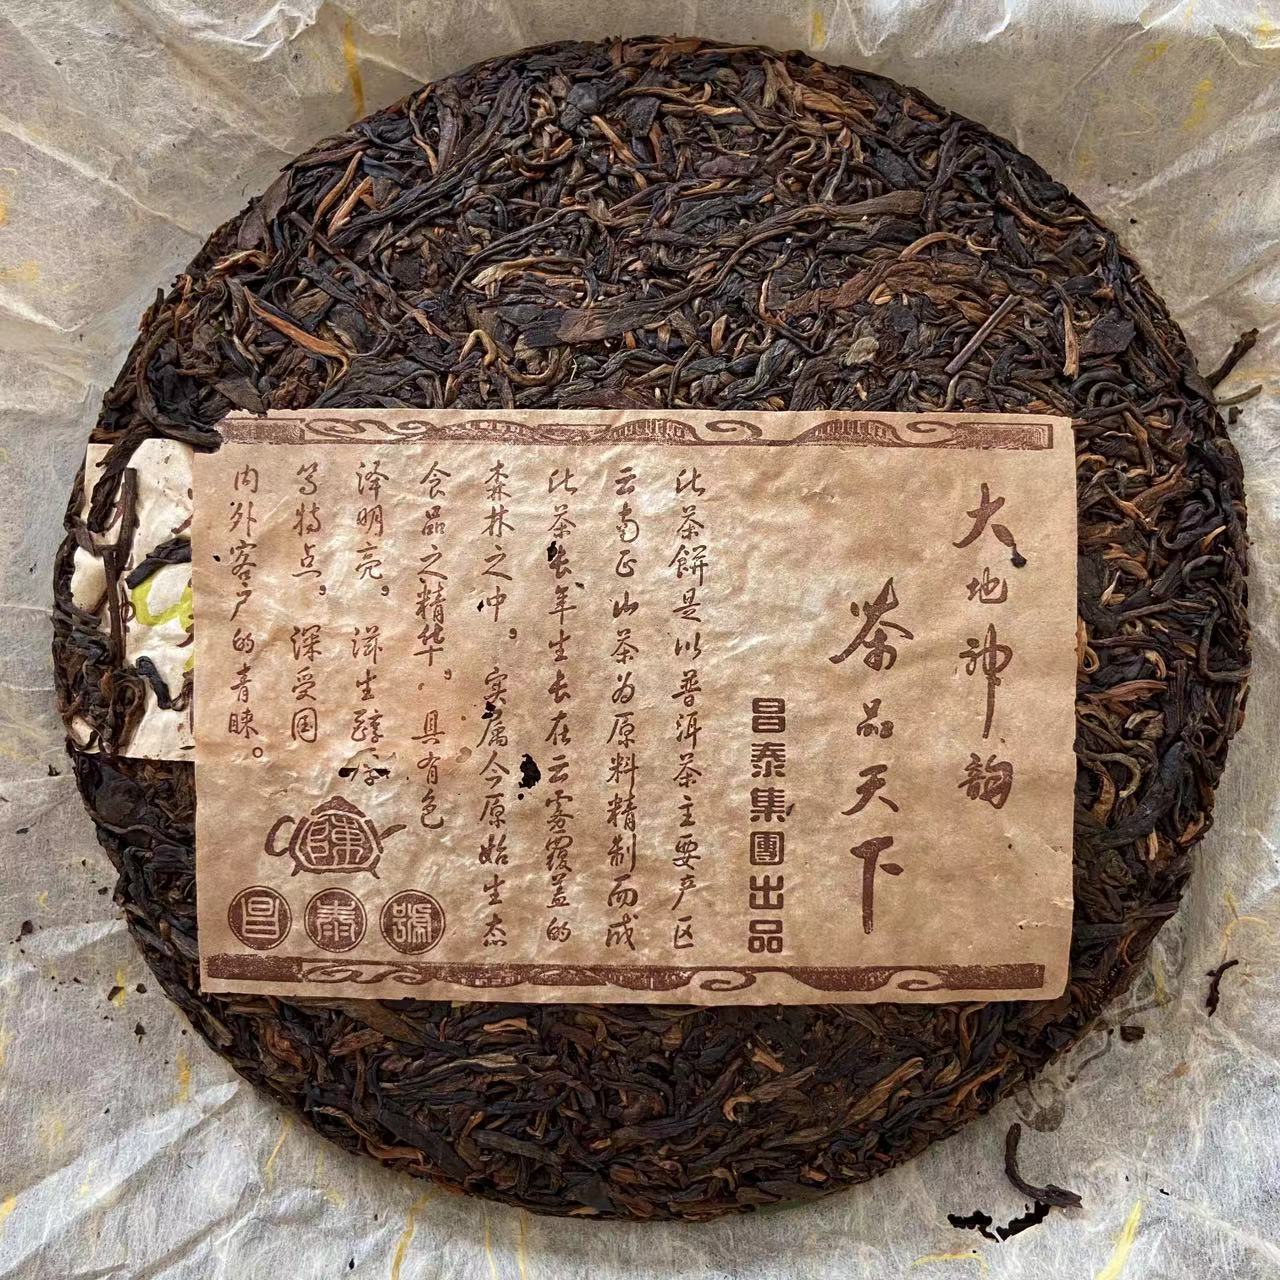 大地神韵
茶品天下
昌泰集團出品
此茶餅是以普洱茶主要产区
云南正山茶为原料精制而成
此茶长年生长在云雾覆盖的
森林之中，实属今原始生态
食品之精华。具有色
泽明亮，滋生醇厚
等特点。深受国
内外客户的青睐。
陳
昌泰號